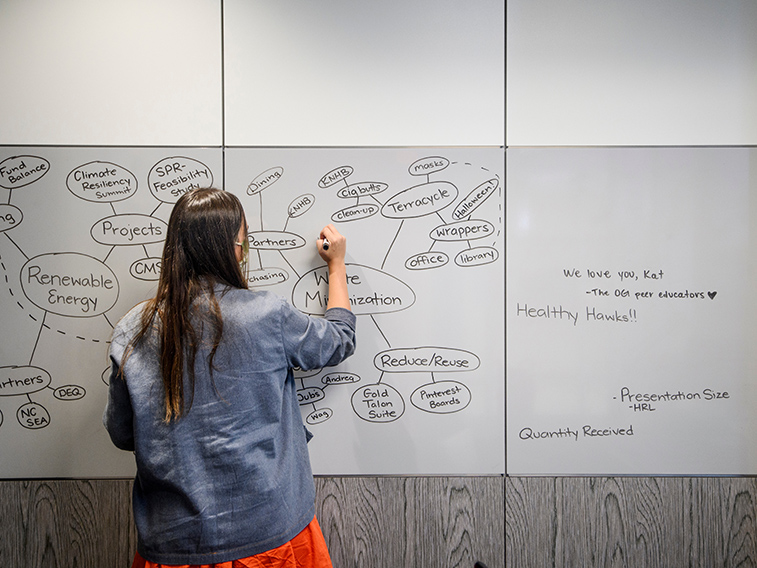 Fund
Balance
Climate
Resiliency
Summit
SPR-
Feasibility
Study
Projects
CMS
Renewable
Energy
DEQ
NC
SEA
Dining
KNHB
Partners
KNHB
cig butts
clean-up
masks
Terracycle
Halloween
wrappers
office
library
Minimization
Reduce/Reuse
Andrea
Wag
Gold
Talon
Suite
Pinterest
Boards
We love you, Kat
-The OGI peer educators ♥
Healthy Hawks!!
- Presentation Size
-HRL
Quantity Received